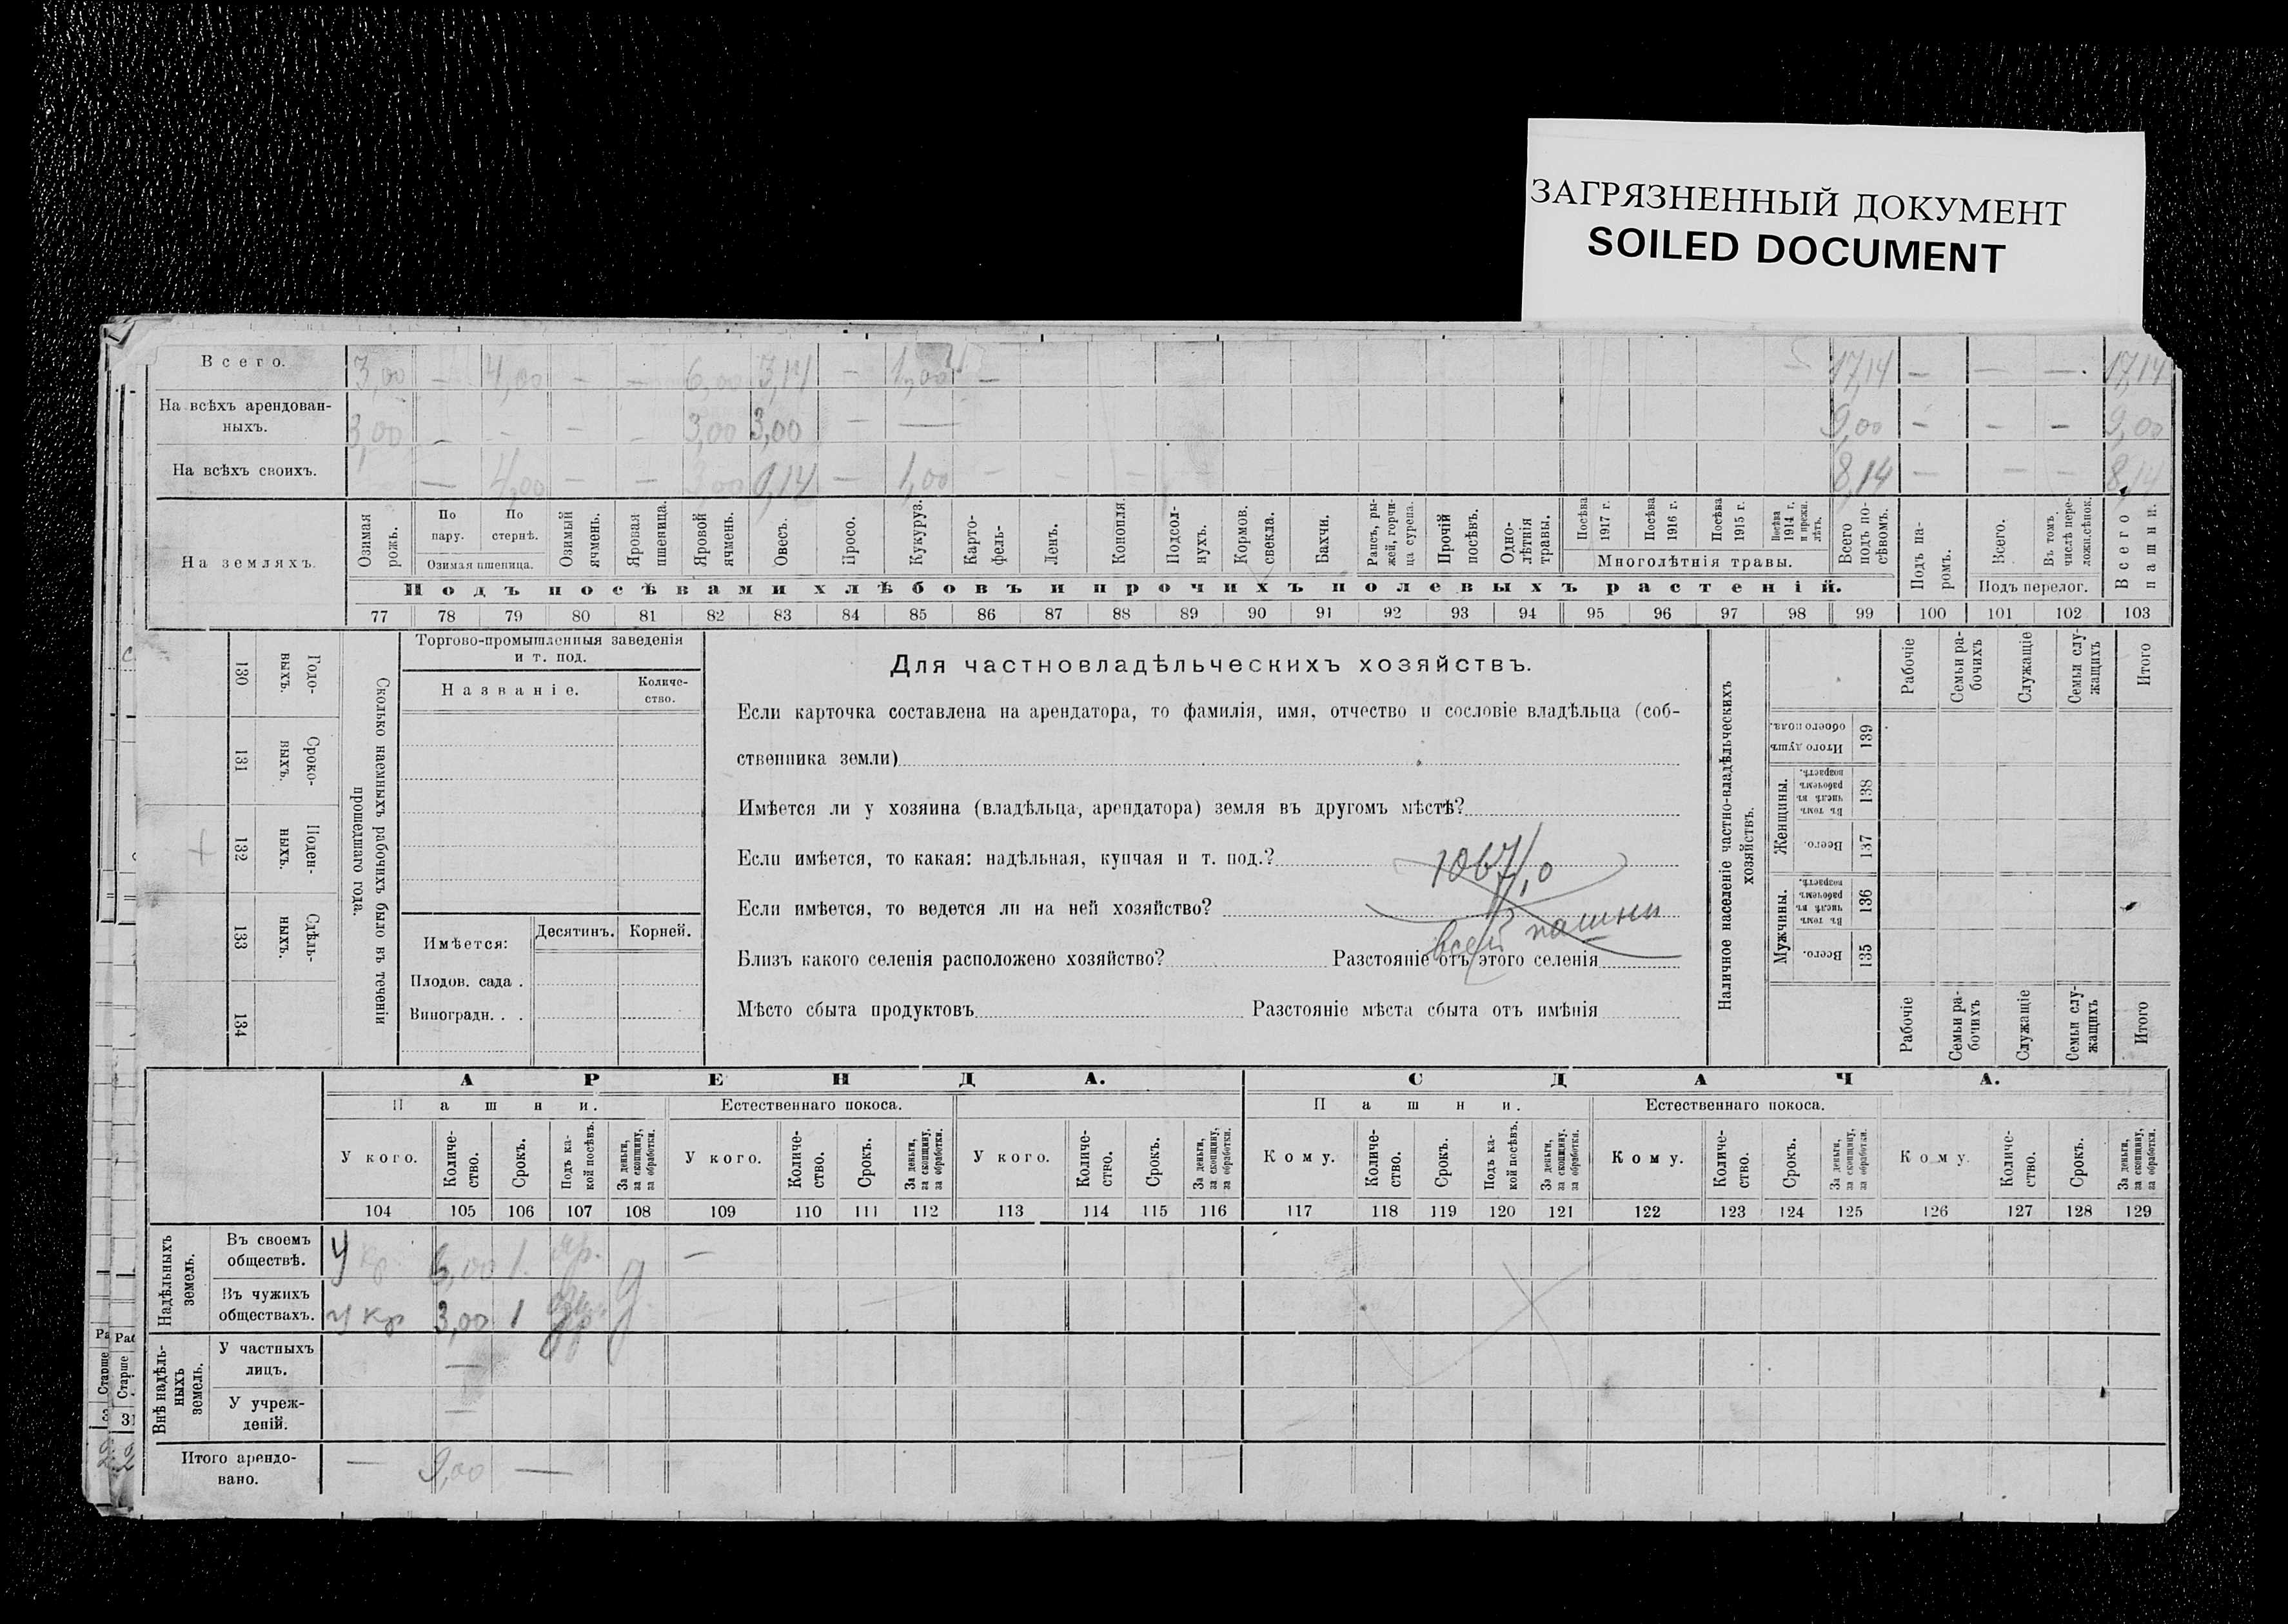 ЗАГРЯЗНЕННЫЙ ДОКУМЕНТ
SOILED DOCUMENT
Всего. 3,00 — 4,00 — — 6,00 3,14 — 1,00 — 17,14 — — — 17,14
На всѣхъ арендован-
ныхъ. 3,00 — — — — 3,00 3,00 — — 9,00 — — — 9,00
На всѣхъ своихъ. — 4,00 — — 3,00 0,14 — 1,00 — 8,14 — — — 8,14
На земляхъ.
Озимая рожь.
По пару.
По стернѣ.
Озимая пшеница.
Озимый ячмень.
Яровая пшеница.
Яровой ячмень.
Овесъ.
Просо.
Кукуруз.
Карто-
фель.
Ленъ.
Конопля.
Подсол-
нухъ.
Кормов.
свекла.
Бахчи.
Рапсъ, ры-
жей, горчи-
ца сурепа.
Прочій
посѣвъ.
Одно-
лѣтнія
травы.
Посѣва
1917 г.
Посѣва
1916 г.
Посѣва
1915 г.
Посѣва
1914 г.
и прежн.
лѣтъ.
Многолѣтнія травы.
Всего
подъ по-
сѣвомъ.
Подъ па-
ромъ.
Всего.
Въ томъ
числѣ пере-
ложн.сѣнок.
Подъ перелог.
Всего
пашни.
Подъ посѣвами хлѣбовъ и прочихъ полевыхъ растеній.
77 78 79 80 81 82 83 84 85 86 87 88 89 90 91 92 93 94 95 96 97 98 99 100 101 102 103
130 Годо-
выхъ.
131 Сроко-
выхъ.
132 Поден-
ныхъ.
133 Сдѣль-
ныхъ.
134
Сколько наемныхъ рабочихъ было въ теченіи
прошедшаго года.
Торгово-промышленныя заведенія
и т. под.
Названіе.
Количе-
ство.
Имѣется:
Десятинъ. Корней.
Плодов. сада .
Виноградн. . .
Для частновладѣльческихъ хозяйствъ.
Если карточка составлена на арендатора, то фамилія, имя, отчество и сословіе владѣльца (соб-
ственника земли)
Имѣется ли у хозяина (владѣльца, арендатора) земля въ другомъ мѣстѣ?
Если имѣется, то какая: надѣльная, купчая и т. под.?
Если имѣется, то ведется ли на ней хозяйство?
всей пашни
Близъ какого селенія расположено хозяйство? Разстояніе отъ этого селенія
Мѣсто сбыта продуктовъ Разстояніе мѣста сбыта отъ имѣнія
Наличное населеніе частно-владѣльческихъ
хозяйствъ.
Рабочіе
Семьи ра-
бочихъ
Служащіе
Семьи слу-
жащихъ
Итого
Итого душъ
обоего пола.
139
Женщины.
Въ томъ
числѣ въ
рабочемъ
возрастѣ.
138
Всего.
137
Мужчины.
Въ томъ
числѣ въ
рабочемъ
возрастѣ.
136
Всего.
135
Рабочіе
Семьи ра-
бочихъ
Служащіе
Семьи слу-
жащихъ
Итого
АРЕНДА. СДАЧА.
Пашни. Естественнаго покоса. Пашни. Естественнаго покоса.
У кого.
Количе-
ство.
Срокъ.
Подъ ка-
кой посѣвъ.
За деньги,
за скопщину,
за обработки.
У кого.
Количе-
ство.
Срокъ.
За деньги,
за скопщину,
за обработки.
У кого.
Количе-
ство.
Срокъ.
За деньги,
за скопщину,
за обработки.
Кому.
Количе-
ство.
Срокъ.
Подъ ка-
кой посѣвъ.
За деньги,
за скопщину,
за обработки.
Кому.
Количе-
ство.
Срокъ.
За деньги,
за скопщину,
за обработки.
Кому.
Количе-
ство.
Срокъ.
За деньги,
за скопщину,
за обработки.
104 105 106 107 108 109 110 111 112 113 114 115 116 117 118 119 120 121 122 123 124 125 126 127 128 129
Надѣльныхъ
земель.
Въ своемъ
обществѣ. У кр. 6,00 1. яр. —
Въ чужихъ
обществахъ. у кр 3,00 1
Внѣ надѣль-
ныхъ
земель.
У частныхъ
лицъ. —
У учреж-
деній. —
Итого арендо-
вано. — 9,00 —
Старше
Старше
31